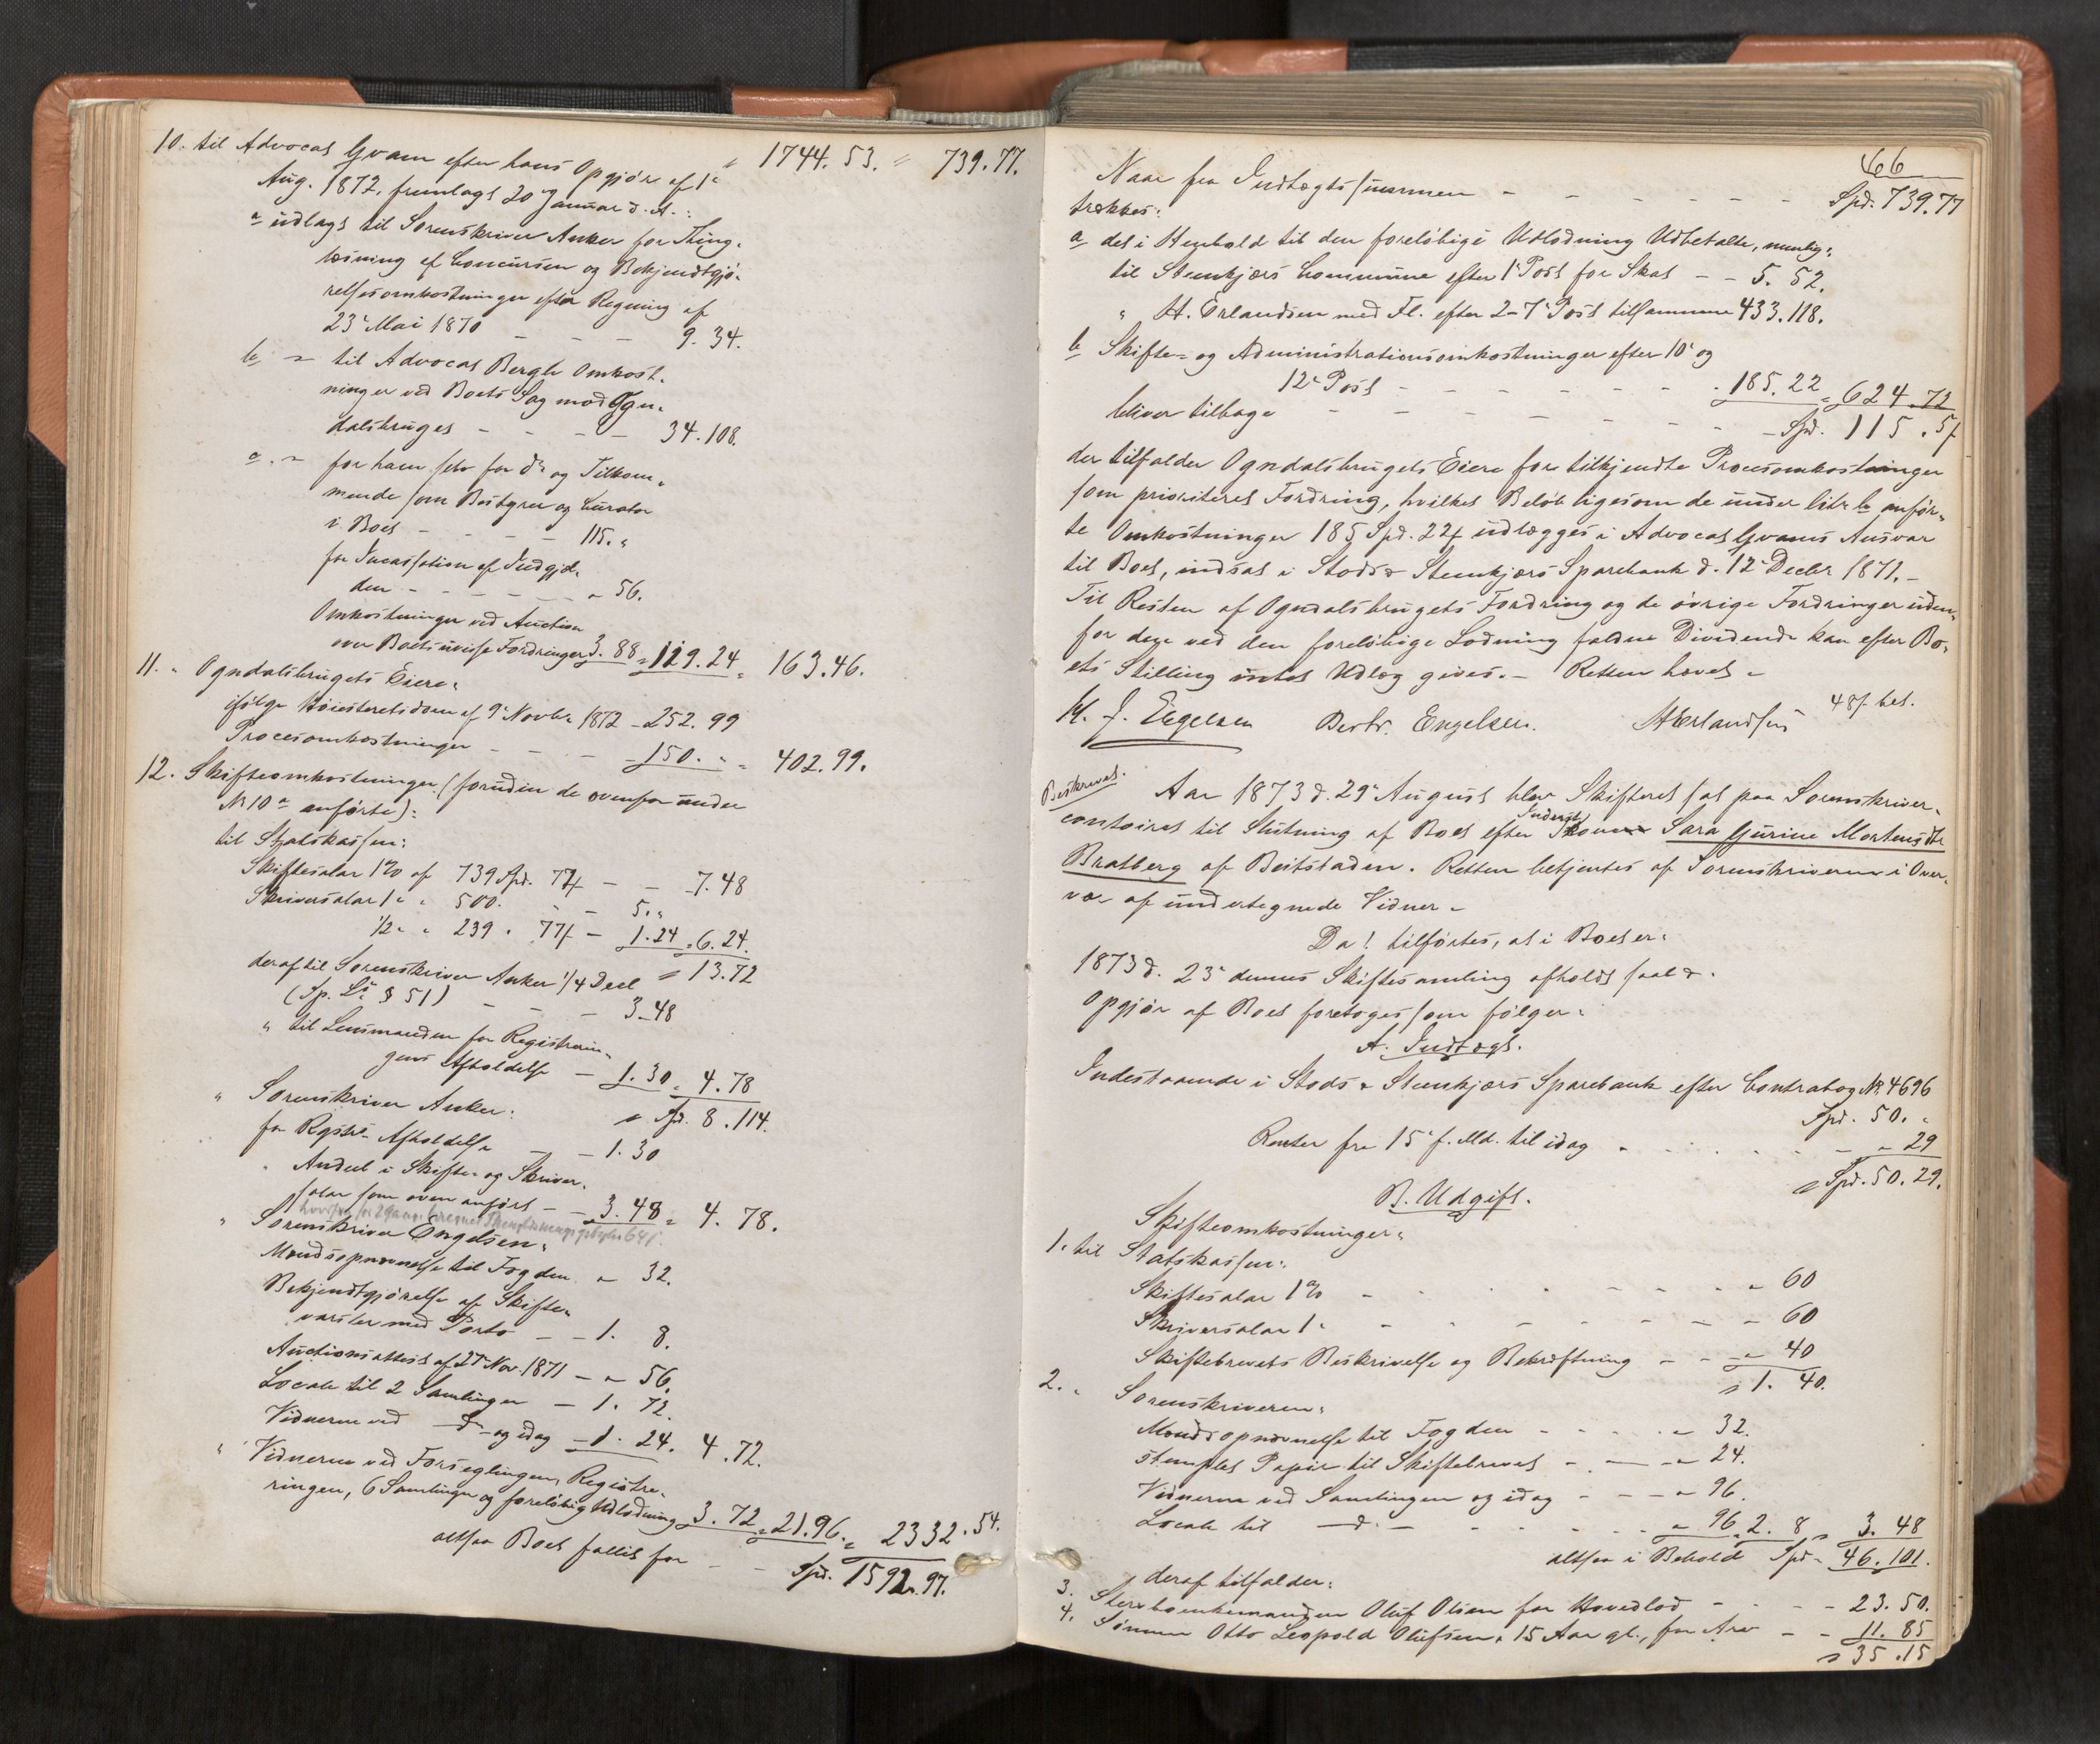 10. til Advocat Gram efter hans Opgjør af 1e " 1744. 53. " 739. 77.
Aug. 1872, fremlagt 20e Januar d. A.:
a udlagt til Sorenskriver Anker for Thing-
læsning af Concursen og Bekjendtgjø-
relsesomkostninger efter Regning af
23e Mai 1870 - - - 9. 34.
b, " til Advocat Bergh Omkost-
ninger ved Boets Sag mod Ogn-
dalsbruget - - - - 34. 108.
c. " for ham selv for do og Tilkom-
mende som Bestyrer og Curator
i Boet - - - - 115. "
for Incassation af Indgjel-
den - - - - - - " 56.
Omkostninger ved Auction
over Boets uvisse Fordringer 3. 88 = 119. 24 = 163. 46.
11. " Ogndalsbrugets Eiere:
ifølge Høiesteretsdom af 9e Novbr 1872 - 252. 99
Procesomkostninger - - - - 150. " = 402. 99.
12. Skifteomkostninger (foruden de ovenfor under
No 10 a anførte):
til Statskassen:
Skiftesalar 1% af 739 Spd. 77 s - - 7. 48
Skriversalar 1 " " 500. - - 5. "
1/2 " " 239 " 77 s - 1. 24 = 6. 24.
" 13. 72
deraf til Sorenskriver Anker 1/4 Deel
(Sp. L. § 51) - - - 3 - 48
" til Lensmanden for Registrerin-
gens Afholdelse - 1. 30 = 4. 78
" Spd. 8. 114.
" Sorenskriver Anker:
for Registr. Afholdelse - - 1. 30
" Andeel i Skifte- og Skriver-
salar som oven anført - - 3. 48 = 4. 78.
" Sorenskriver Engelsen:
Mandsopnævnelse til Fogden " 32.
Bekjendtgjørelse af Skifte-
varsler med Porto - - 1. 8.
Auctionsattest af 27 Nov. 1871 - " 56.
Locale til 2 Samlinger - 1. 72.
Vidnerne ved - do - og idag - 1. 24. 4. 72.
" Vidnerne ved Forseglingen, Registre-
ringen, 6 Samlinger og foreløbig Udlodning 3. 72 = 21. 96. = 2332. 54.
altsaa Boet fallit for - - Spd. 1592. 97.
66
Naar fra Indtægtssummen - - - - - - Spd. 739. 77
trækkes:
a det i Henhold til den foreløbige Udlodning Udbetalte, nemlig:
til Stenkjærs Commune efter 1e Post for Skat - - 5. 52.
" H. Erlandsen med Fl. efter 2-7e Post tilsammen 433. 118.
b Skifte- og Administrationsomkostninger efter 10e og
12e Post - - - - - - - 185. 22 = 624. 72
bliver tilbage - - - - - - - Spd. 115. 5 s
der tilfalder Ogndalsbrugets Eiere for tilkjendte Procesomkostninger
som prioriteret Fordring, hvilket Beløb ligesom de under litr b anfør-
te Omkostninger 185 Spd. 22 s udlægges i Advocat Grams Ansvar
til Boet, indsat i Stods & Stenkjærs Sparebank d. 12e Decbr 1871. -
Til Resten af Ogndalsbrugets Fordring og de øvrige Fordringer uden-
for deze ved den foreløbige Lodning faldne Dividende kan efter Bo-
ets Stilling intet Udlæg gives. - Retten hævet -
H. J. Engelsen Berbr. Engelsen. H Erlandsen 48 s bet.
Beskrevet.
Aar 1873 d. 29e August blev Skifteret sat paa Sorenskriver-
contoiret til Slutning af Boet efter Inderst
Kone Sara Gurine Mortensdtr
Bratberg af Beitstaden. Retten betjentes af Sorenskriveren i Over-
vær af undertegnede Vidner -
Da! tilførtes, at i Boet er:
1873 d. 23e dennes Skiftesamling afholdt saal d.
Opgjør af Boet foretoges som følger:
A. Indtægt.
Indestaaende i Stods & Stenkjærs Sparebank efter Contrabog No 4696
Spd. 50. "
Renter fra 15e f. Md. til idag - - - - - " 29
" Spd. 50. 29.
B. Udgift.
Skifteomkostninger:
1. til Statskassen:
Skiftesalar 1% - - - - - - " 60
Skriversalar 1 " - - - - - - " 60
Skiftebrevets Beskrivelse og Bekræftning - - " 40
" 1. 40.
2. " Sorenskriveren:
Mandsopnævnelse til Fogden - - - - " 32.
stemplet Papir til Skiftebrevet - - - " 24.
Vidnerne ved Samlingen og idag - - - " 96.
Locale til - d. - - - - - " 96. 2. 8 " 3. 48
altsaa i Behold Spd. 46. 101.
deraf tilfalder:
3. Sterboenkemanden Oluf Olsen for Hovedlod - - - 23. 50.
4. Sønnen Otto Leopold Olufsen, 15 Aar gl., for Arv - - 11. 85
" 35. 15